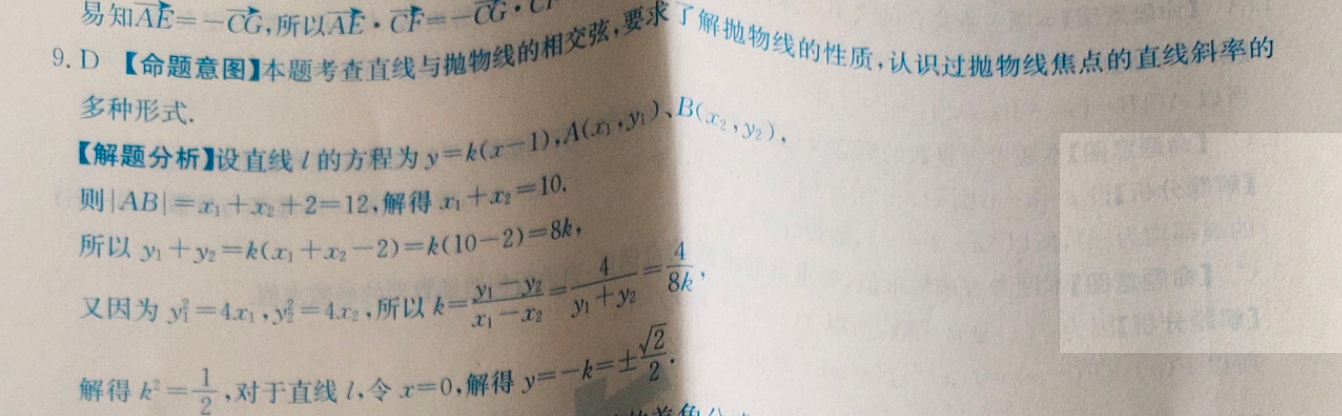 易知$\overrightarrow{AE}=-\overrightarrow{CG}$,所以$\overrightarrow{AE}\cdot\overrightarrow{CF}=-\overrightarrow{CG}\cdot$
9. D 【命题意图】本题考查直线与抛物线的相交弦,要求了解抛物线的性质,认识过抛物线焦点的直线斜率的
多种形式.
【解题分析】设直线 $l$ 的方程为 $y=k(x-1)$,$A(x_1,y_1)$、$B(x_2,y_2)$,
则$|AB|=x_1+x_2+2=12$,解得 $x_1+x_2=10$.
所以 $y_1+y_2=k(x_1+x_2-2)=k(10-2)=8k$,
又因为 $y_1^2=4x_1$,$y_2^2=4x_2$,所以 $k=\frac{y_1-y_2}{x_1-x_2}=\frac{4}{y_1+y_2}=\frac{4}{8k}$,
解得 $k^2=\frac{1}{2}$,对于直线 $l$,令 $x=0$,解得 $y=-k=\pm\frac{\sqrt{2}}{2}$.